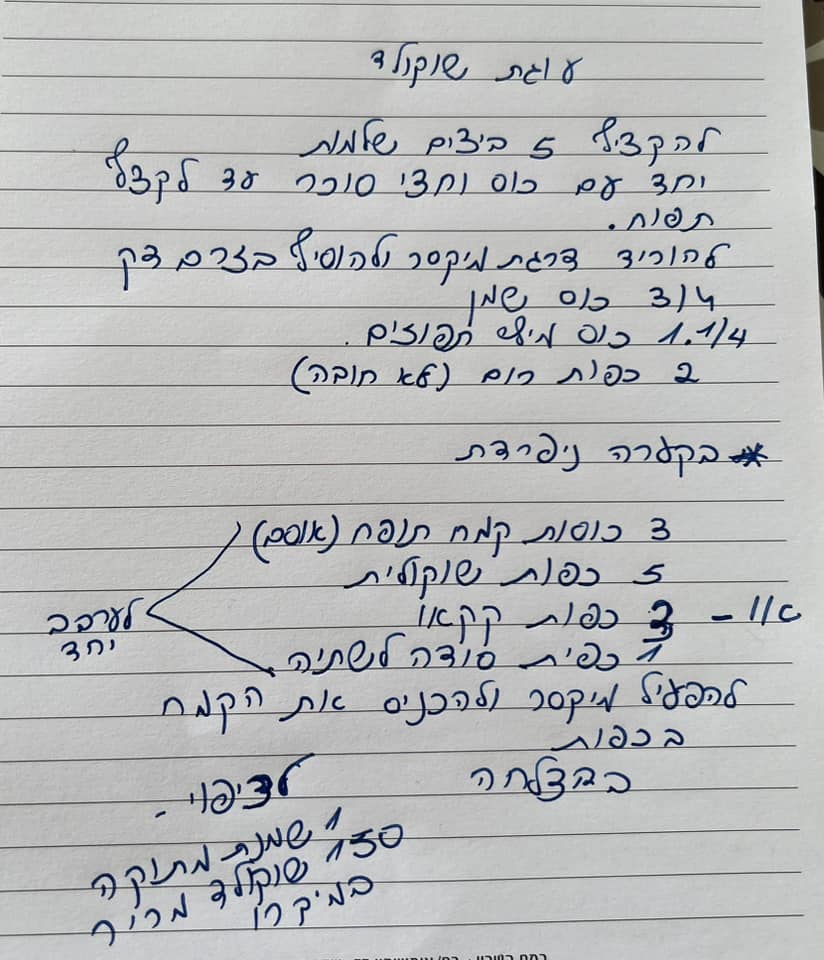 עוגת שוקולד
להקציף 5 ביצים שלמות
יחד עם כוס וחצי סוכר עד לקצף
תפוח.
להוריד דרגת מיקסר ולהוסיף בזרם דק
3/4 כוס שמן
1.1/4 כוס מיץ תפוזים.
2 כפות רום (לא חובה)
* בקערה ניפרדת
3 כוסות קמח תופח (אוסם)
5 כפות שוקולית
או - 3 כפות קקאו
1 כפית סודה לשתיה
לערבב
יחד
להפעיל מיקסר ולהכניס את הקמח
בכפות
בהצלחה
לציפוי -
1 שמנת מתוקה
150 שוקולד מריר
במיקרו